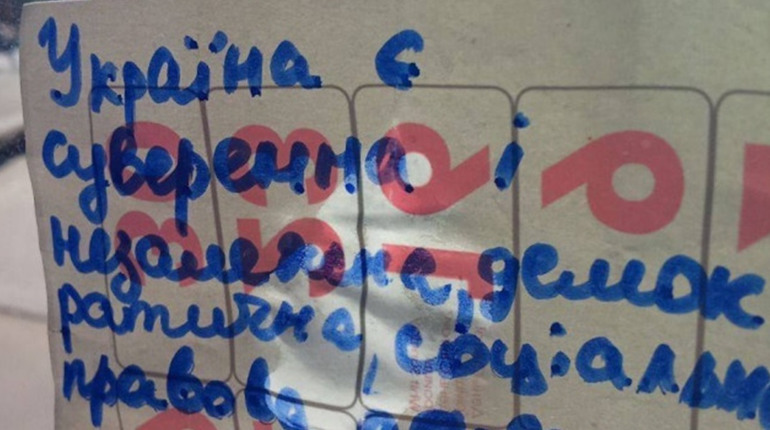 Україна є
суверенна і
незалежна, демок
ратична, соціальн
правова,